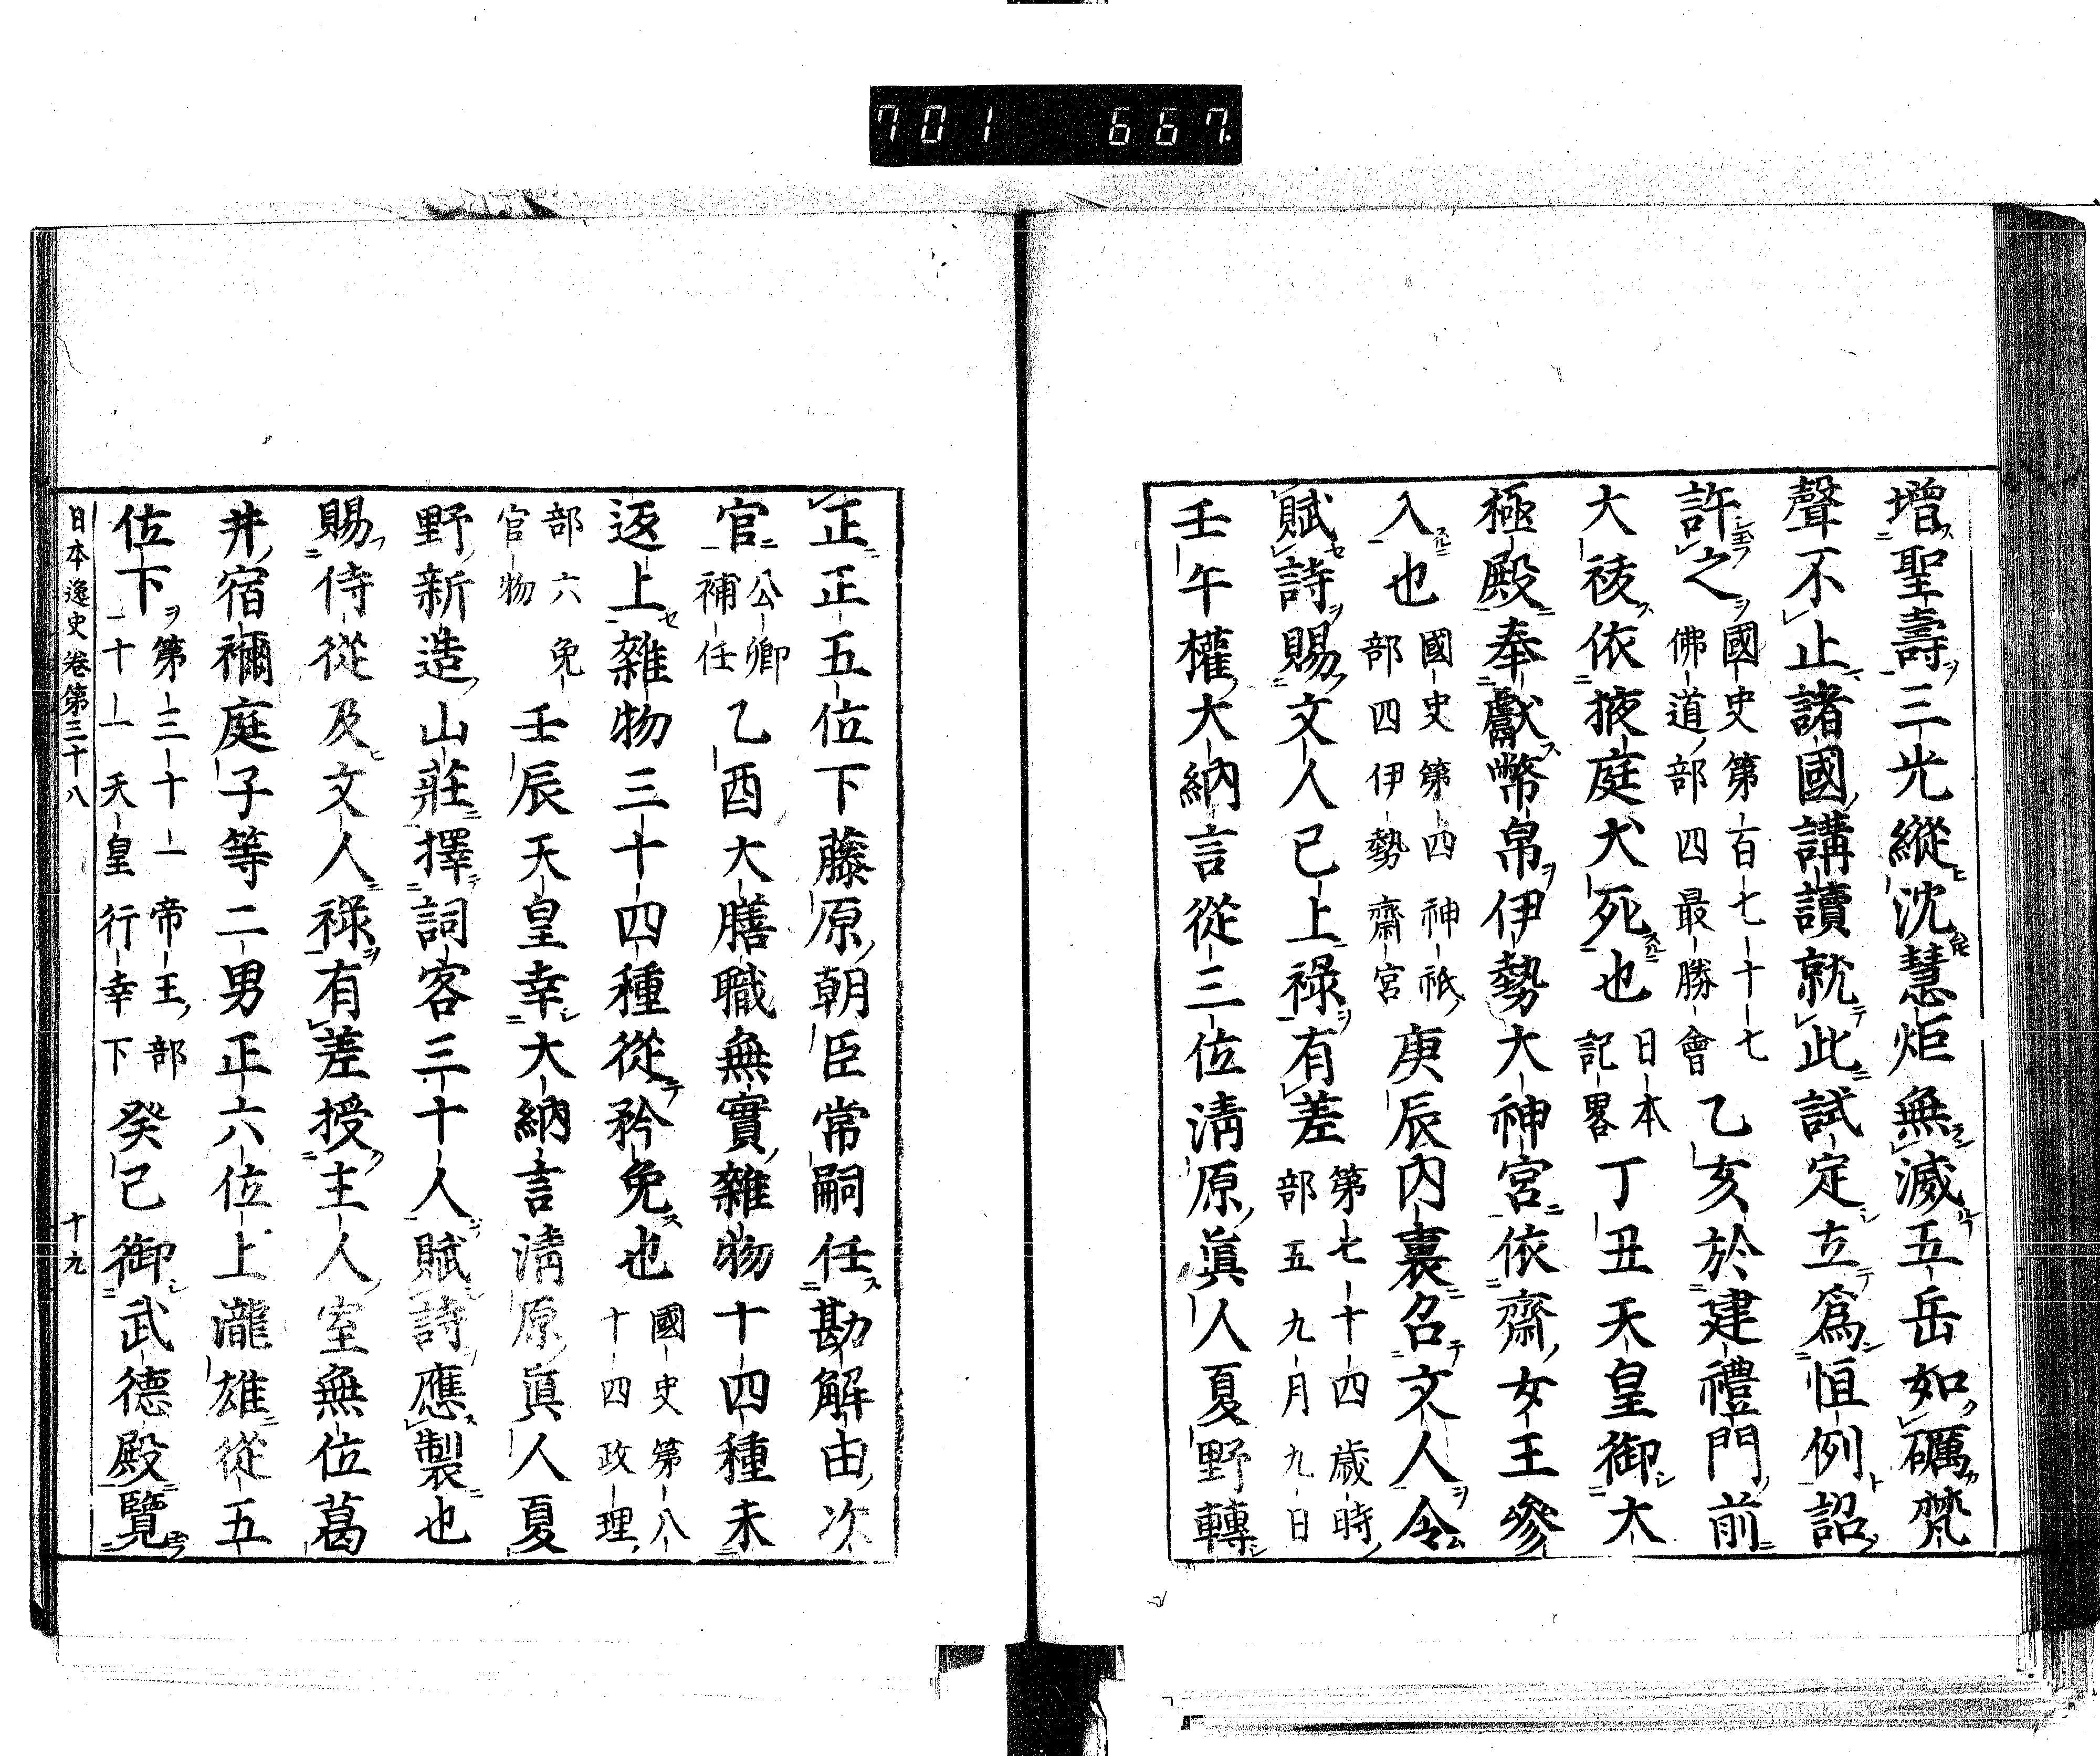 701 667
増聖壽三光縱沈慧炬無滅五岳如礪梵
聲不止諸國講讀就此試定立爲恒例詔
許之國史第百七十七佛道部四最勝會乙亥於建禮門前
大祓依掖庭犬死也日本記畧丁丑天皇御大
極殿奉獻幣帛伊勢大神宮依齋女王參
入也國史第四神祇部四伊勢齋宮庚辰内裏召文人令
賦詩賜文人已上祿有差第七十四歳時部五九月九日
壬午權大納言從三位淸原眞人夏野轉
正正五位下藤原朝臣常嗣任勘解由次
官公卿補任乙酉大膳職無實雜物十四種未
返上雜物三十四種從矜免也國史第八十四政理
部六免官物壬辰天皇幸大納言淸原眞人夏
野新造山莊擇詞客三十人賦詩應製也
賜侍從及文人祿有差授主人室無位葛
井宿禰庭子等二男正六位上瀧雄從五
位下第三十一帝王部十一天皇行幸下癸已御武德殿覽
日本逸史卷第三十八 十九